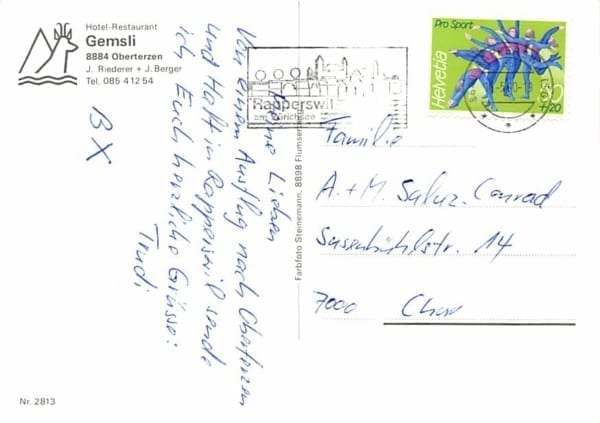 Hotel-Restaurant
Gemsli
8884 Oberterzen
J. Riederer + J. Berger
Tel. 085 41 2 54
BX
Meine Lieben
Von einem Ausflug nach Oberterzen
und Halt in Rapperswil sende
ich Euch herzliche Grüsse!
Trudi
Nr. 2813
Farbfoto Steinemann, 8898 Flumserberg
Rapperswil
am Zürichsee
Pro Sport
Helvetia
+20
Familie
A. + M. Saluz-Conrad
Süsswinkelstr. 14
7000 Chur